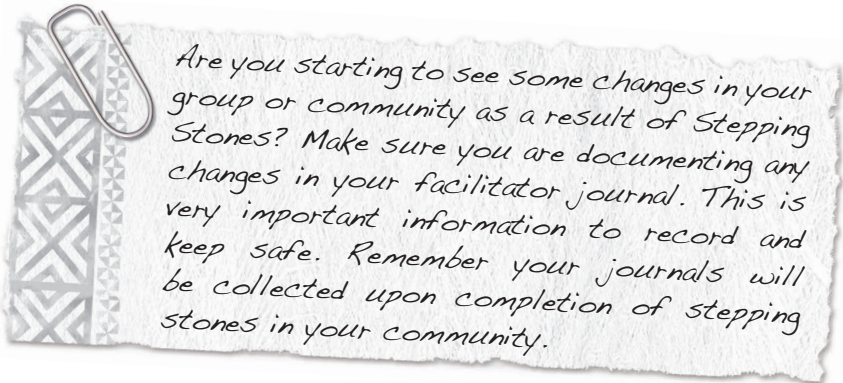 Are you starting to see some changes in your
group or community as a result of Stepping
Stones? Make sure you are documenting any
changes in your facilitator journal. This is
very important information to record and
keep safe. Remember your journals will
be collected upon completion of stepping
stones in your community.